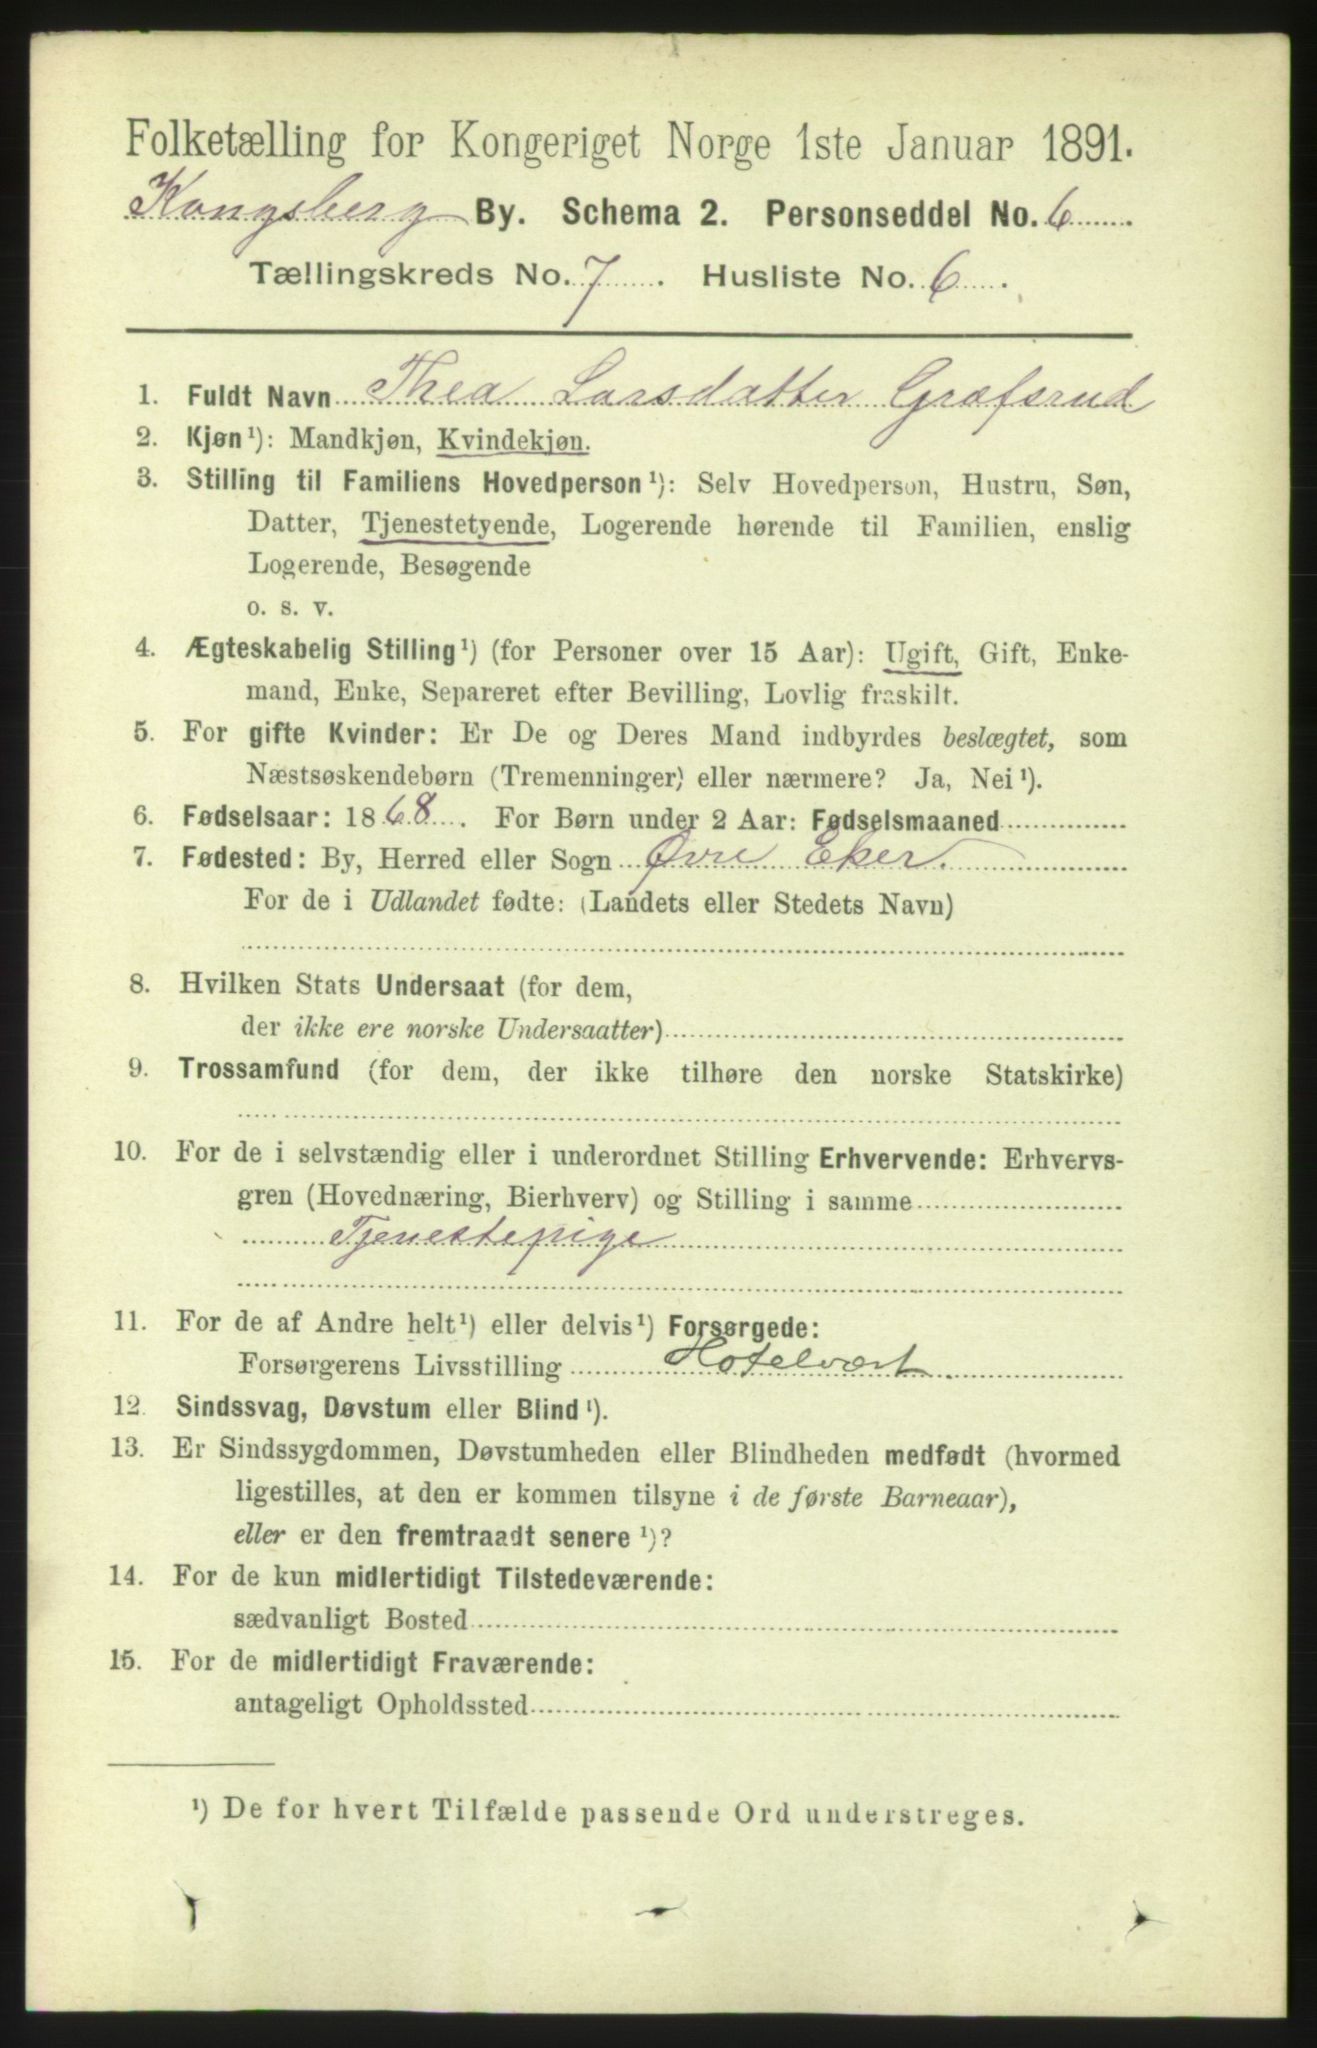 Folketælling for Kongeriget Norge 1ste Januar 1891.
Kongsberg By. Schema 2. Personseddel No. 6
Tællingskreds No. 7. Husliste No. 6
1. Fuldt Navn Thea Larsdatter Græfsrud
2. Kjøn ¹): Mandkjøn, Kvindekjøn.
3. Stilling til Familiens Hovedperson ¹): Selv Hovedperson, Hustru, Søn,
Datter, Tjenestetyende, Logerende hørende til Familien, enslig
Logerende, Besøgende
o. s. v.
4. Ægteskabelig Stilling ¹) (for Personer over 15 Aar): Ugift, Gift, Enke-
mand, Enke, Separeret efter Bevilling, Lovlig fraskilt.
5. For gifte Kvinder: Er De og Deres Mand indbyrdes beslægtet, som
Næstsøskendebørn (Tremenninger) eller nærmere? Ja, Nei ¹).
6. Fødselsaar: 1868. For Børn under 2 Aar: Fødselsmaaned
7. Fødested: By, Herred eller Sogn Øvre Eker.
For de i Udlandet fødte: (Landets eller Stedets Navn)
8. Hvilken Stats Undersaat (for dem,
der ikke ere norske Undersaatter)
9. Trossamfund (for dem, der ikke tilhøre den norske Statskirke)
10. For de i selvstændig eller i underordnet Stilling Erhvervende: Erhvervs-
gren (Hovednæring, Bierhverv) og Stilling i samme
Tjenestepige
11. For de af Andre helt ¹) eller delvis ¹) Forsørgede:
Forsørgerens Livsstilling Hotelvært.
12. Sindssvag, Døvstum eller Blind ¹).
13. Er Sindssygdommen, Døvstumheden eller Blindheden medfødt (hvormed
ligestilles, at den er kommen tilsyne i de første Barneaar),
eller er den fremtraadt senere ¹)?
14. For de kun midlertidigt Tilstedeværende:
sædvanligt Bosted
15. For de midlertidigt Fraværende:
antageligt Opholdssted
¹) De for hvert Tilfælde passende Ord understreges.